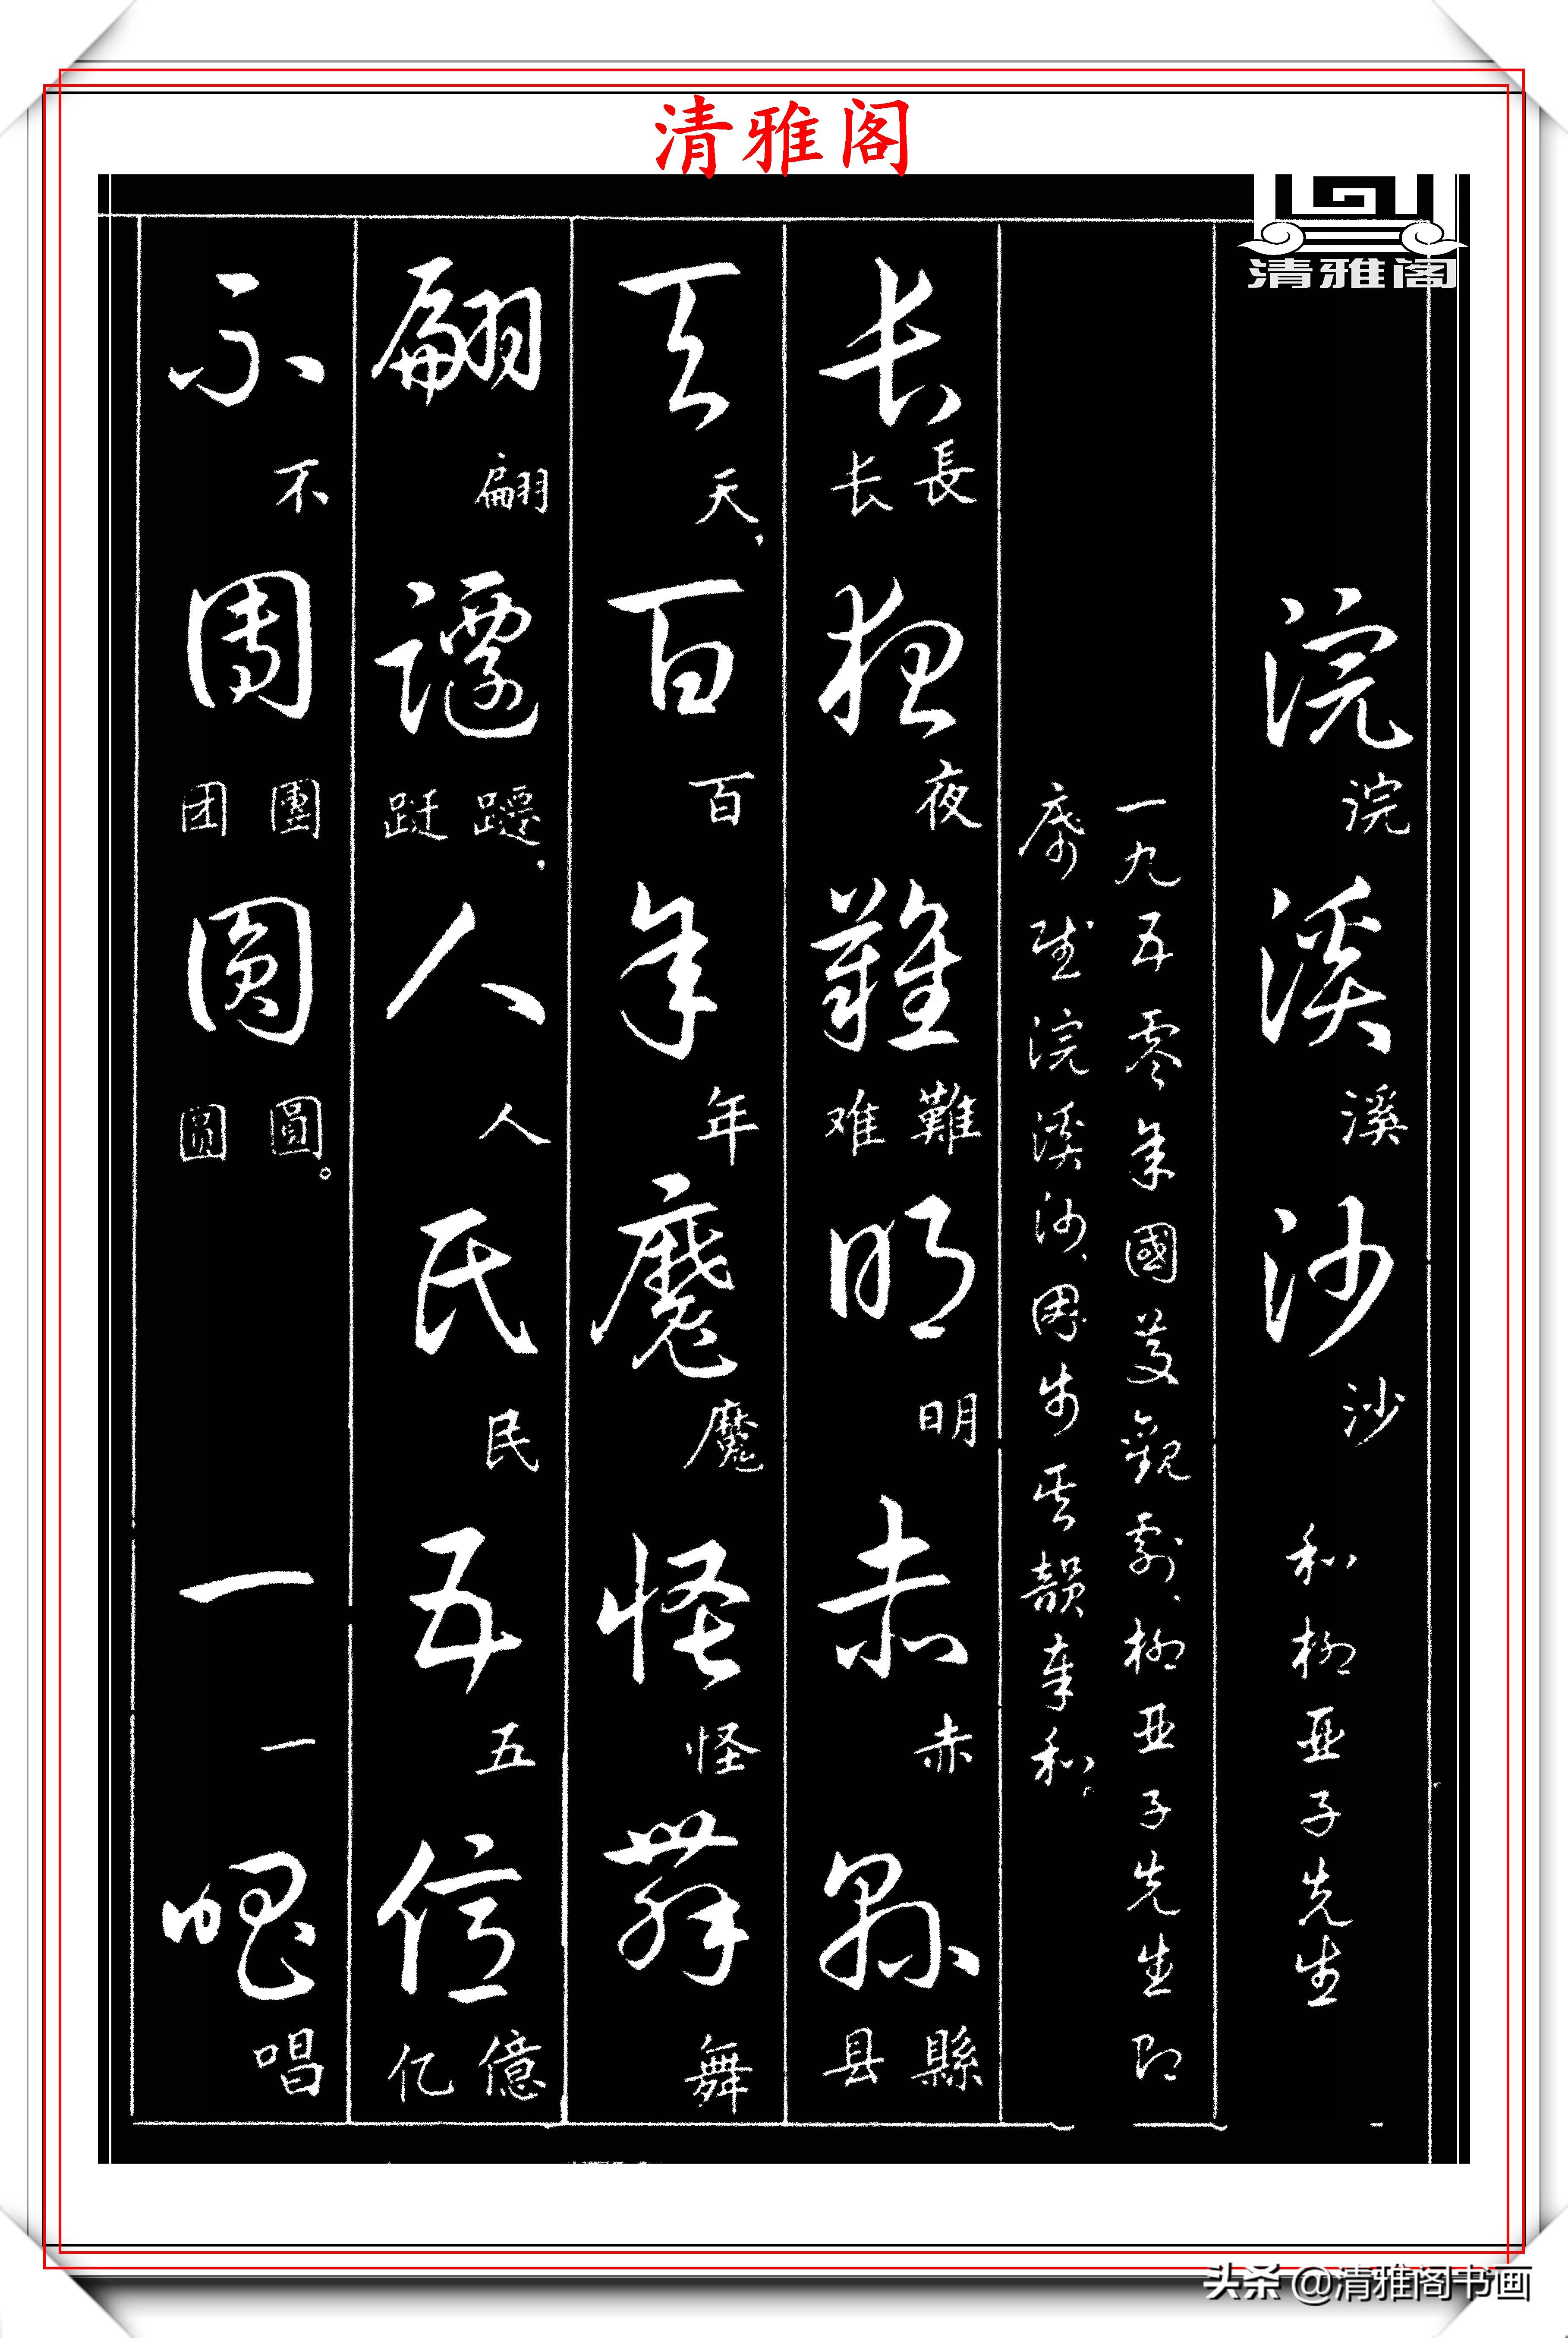 清雅阁
清雅阁
浣浣溪溪沙沙 和柳亚子先生
一九五零年國慶觀劇、柳亚子先生即
席赋浣溪沙、因步其韻奉和。
长長长夜夜難難难明明赤赤縣縣县
天天，百百年年魔魔怪怪舞舞
翩翩躚躚，跹人人民民五五億億亿
不不團團团圓圓。圆一一唱唱
头条 @清雅阁书画